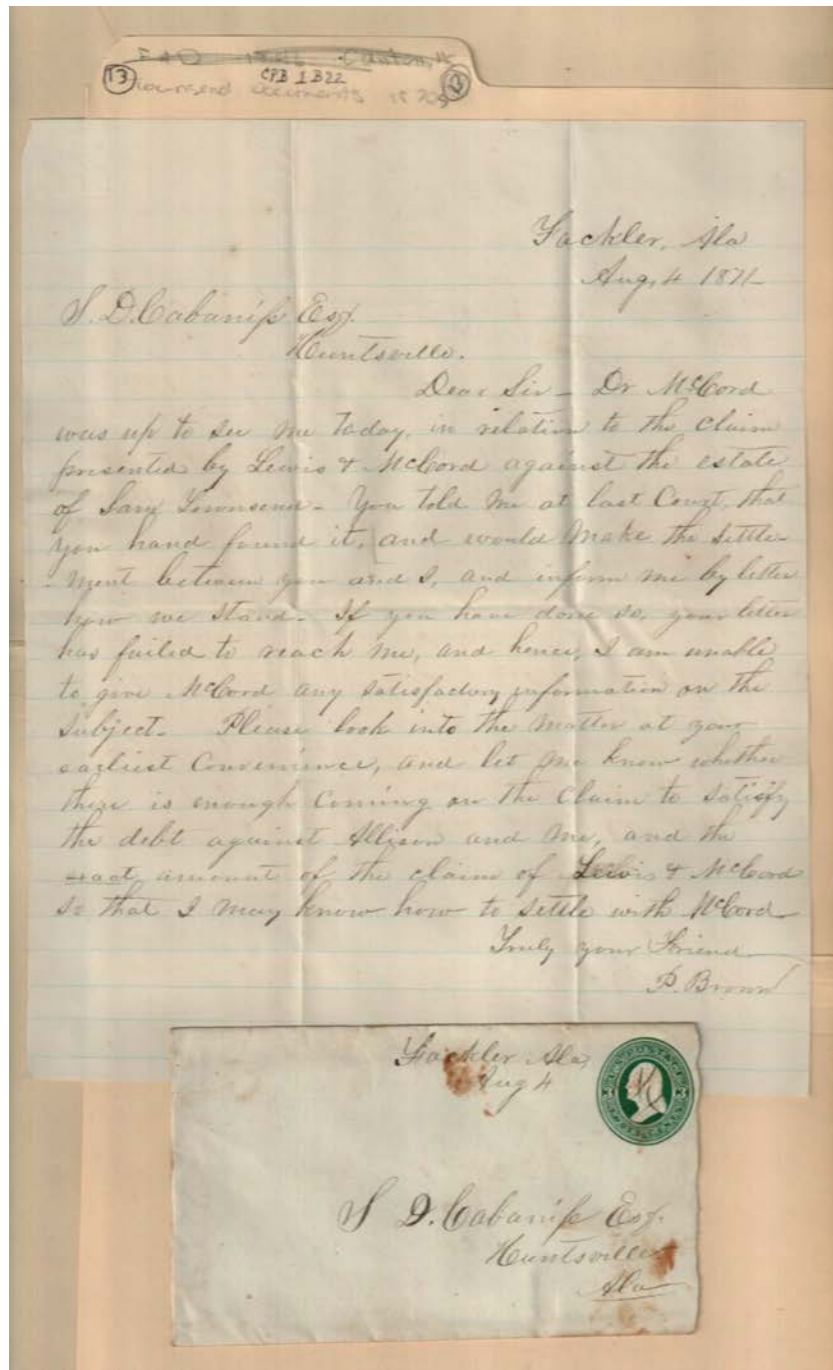 13 CPB 1B22 12
Townsend Documents 1870s
Fackler, Ala
Aug, 4 1871
S. D. Cabaniss Esq.
Huntsville.
Dear Sir – Dr McCord
was up to see me today, in relation to the claim
presented by Lewis & McCord against the estate
of Saml Townsend – You told me at last Court, that
you hand found it, and would make the settle-
-ment between you and I, and inform me by letter
how we stand – If you have done so, your letter
has failed to reach me, and hence, I am unable
to give McCord any satisfactory information on the
subject – Please look into the matter at your
earliest convenience, and let me know whether
there is enough coming on the claim to satisfy
the debt against Allison and me, and the
exact amount of the claim of Lewis & McCord
so that I may know how to settle with McCord –
Truly your Friend
P. Brown
Fackler Ala,
Aug 4
U.S. POSTAGE
S D. Cabaniss Esq.
Huntsville
Ala